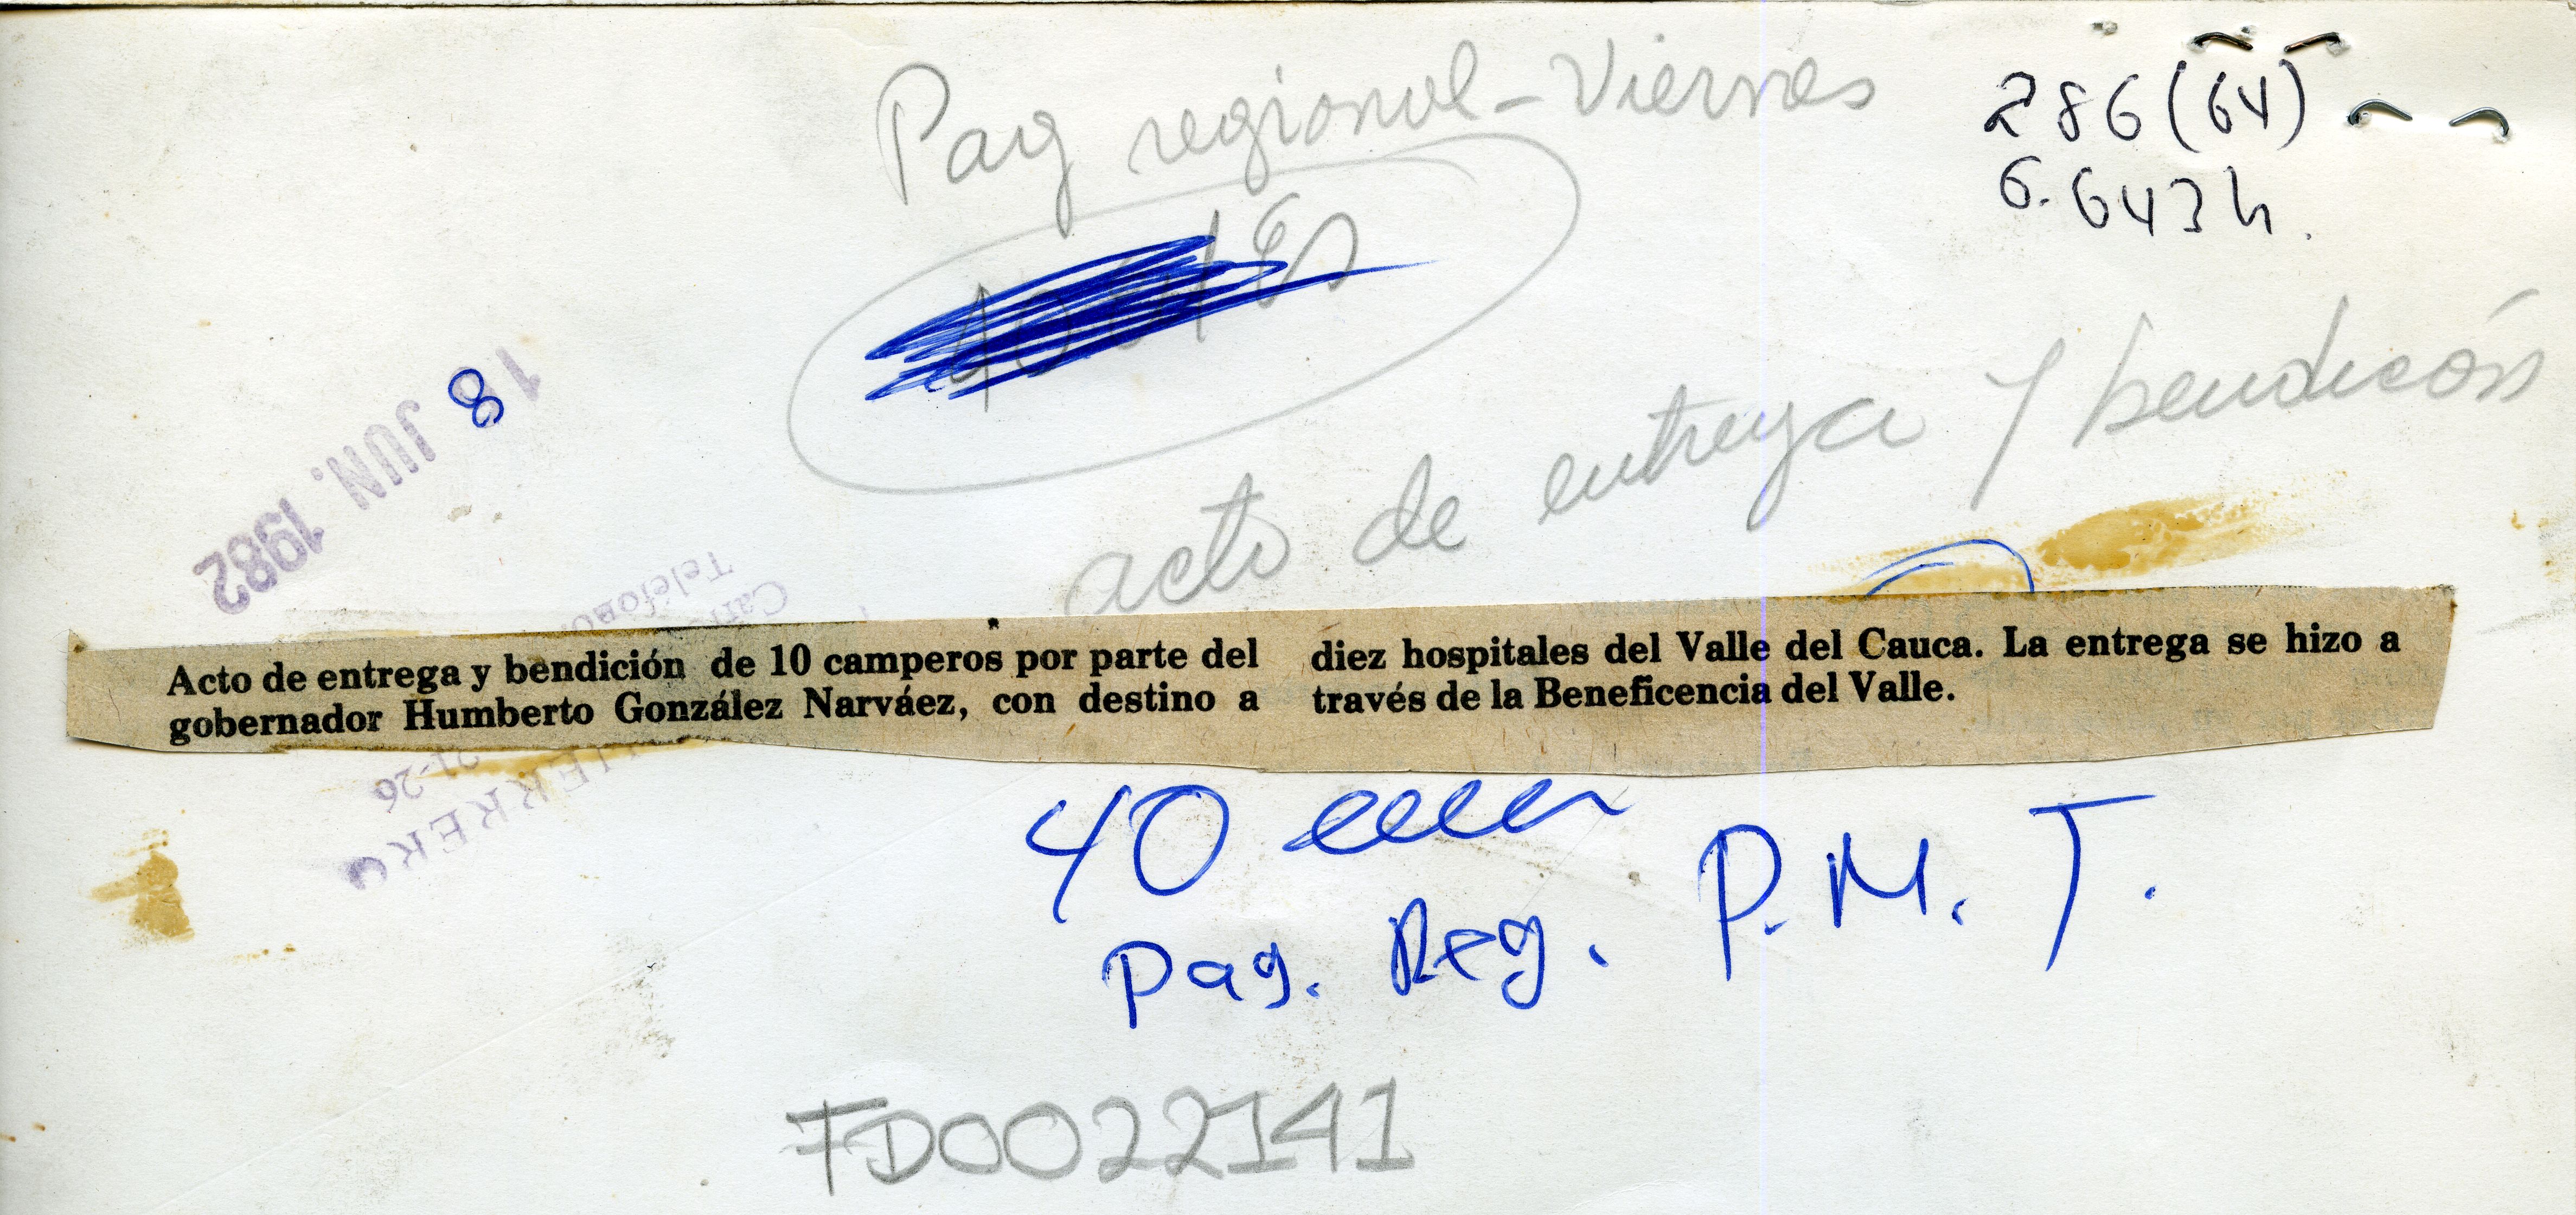 Pag regional - Viernes
286 (64)
6.643 h.
18 JUN. 1982
acto de entrega y bendicón
Teléfono
Acto de entrega y bendición de 10 camperos por parte del
gobernador Humberto González Narváez, con destino a
diez hospitales del Valle del Cauca. La entrega se hizo a
través de la Beneficencia del Valle.
21-26
40
Pag. Reg. P.M.T.
FD0022141